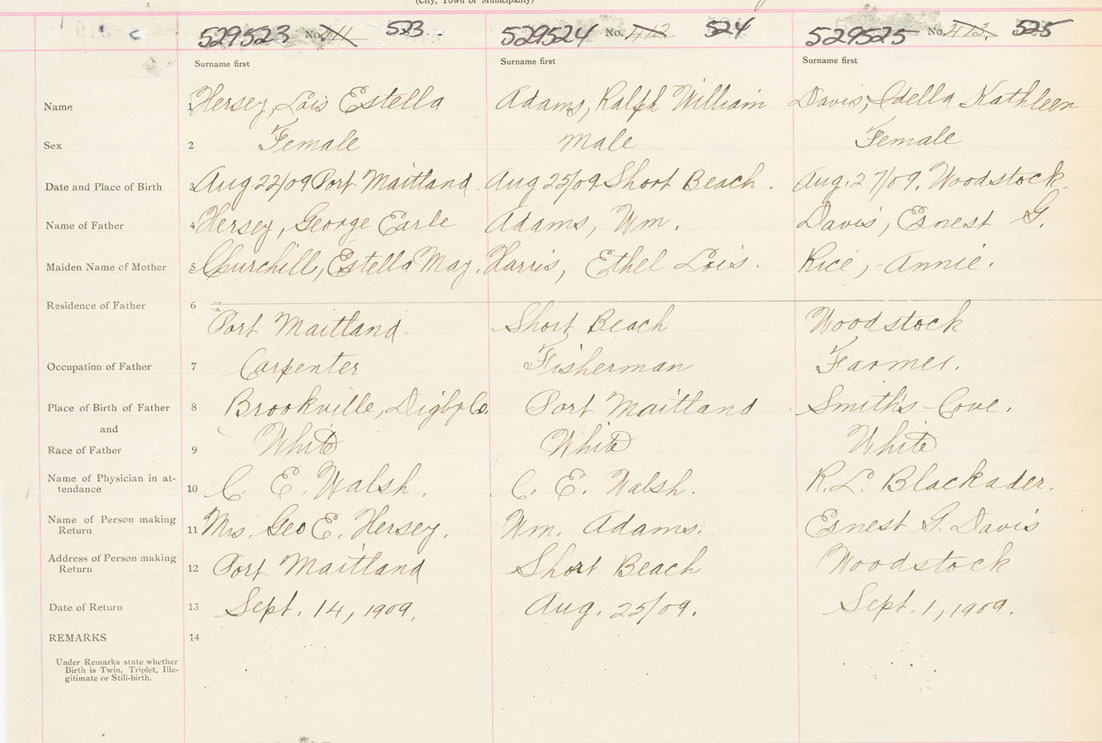 (City, Town or Municipality)
529523 No. 411 523 529524 No. 412 524 529525 No. 413 525
Surname first Surname first Surname first
Name 1 Hersey, Lois Estella Adams, Ralph William Davis, Idella Kathleen
Sex 2 Female Male Female
Date and Place of Birth 3 Aug 22/09 Port Maitland Aug 25/09 Short Beach. Aug. 27/09. Woodstock
Name of Father 4 Hersey, George Earle Adams, Wm. Davis, Ernest G.
Maiden Name of Mother 5 Churchill, Estella May. Harris, Ethel Lois. Rice, Annie.
Residence of Father 6
Port Maitland. Short Beach Woodstock
Occupation of Father 7 Carpenter Fisherman Farmer.
Place of Birth of Father 8 Brookville, Digby Co. Port Maitland Smith's Cove.
and
Race of Father 9 White White White
Name of Physician in at-
tendance 10 C. E. Walsh. C. E. Walsh. R. L. Blackader.
Name of Person making
Return 11 Mrs. Geo E. Hersey. Wm. Adams. Ernest G. Davis
Address of Person making
Return 12 Port Maitland Short Beach Woodstock
Date of Return 13 Sept. 14, 1909. Aug. 25/09. Sept. 1, 1909.
REMARKS 14
Under Remarks state whether
Birth is Twin, Triplet, Ille-
gitimate or Still-birth.